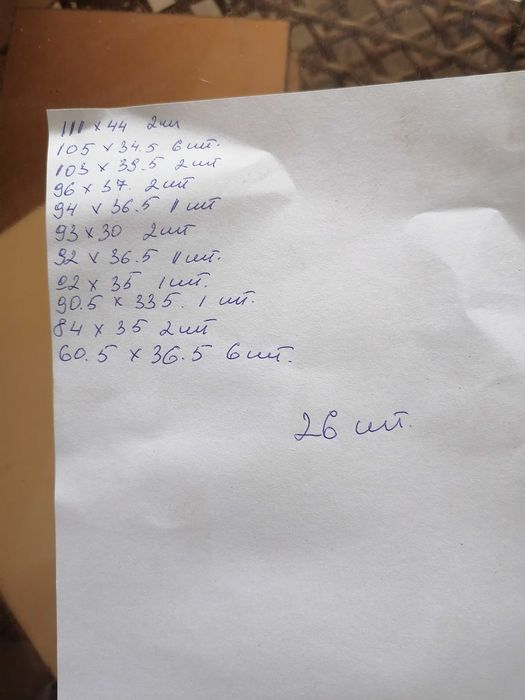 111 x 44 2шт
105 x 34.5 6 шт.
103 x 39.5 2 шт
96 x 37. 2 шт
94 x 36.5 1 шт
93 x 30 2 шт
92 x 36.5 1 шт.
92 x 35 1 шт.
90.5 x 33.5. 1 шт.
84 x 35 2 шт
60.5 x 36.5 6 шт.
26 шт.